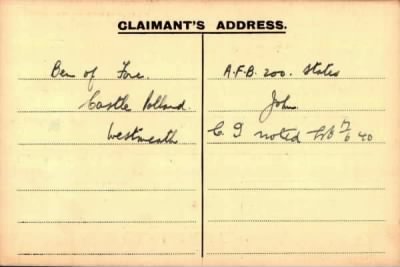 CLAIMANT'S ADDRESS.
Ben of Fore.
Castle Pollard.
Westmeath
A.F.B. 200. States
John.
C I noted 17/6 40